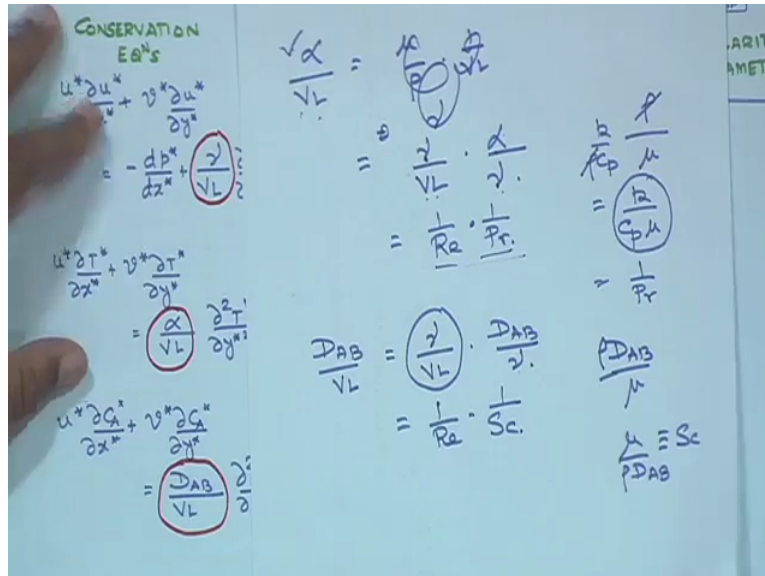 CONSERVATION
EQNS
u* ∂u* + v* ∂u*
∂y*
= - dp*/dx* + ν/VL
u* ∂T*/∂x* + v* ∂T*/∂y*
= α/VL ∂²T*/∂y*²
u* ∂CA*/∂x* + v* ∂CA*/∂y*
= DAB/VL ∂²/∂
α/VL =
= ν/VL · α/ν.
= 1/Re · 1/Pr.
DAB/VL = ν/VL · DAB/ν.
= 1/Re · 1/Sc.
k/ρCp ρ/μ
= k/Cpμ
= 1/Pr
ρDAB/μ
μ/ρDAB ≡ Sc